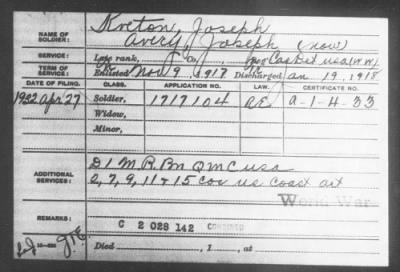 NAME OF SOLDIER: Kreton, Joseph
Avery, Joseph (now)
SERVICE: Late rank, Co., Reg Cas Det usa (W.W.)
TERM OF SERVICE: Enlisted Nov 9, 1917 Discharged Jan 19, 1918
DATE OF FILING. CLASS. APPLICATION NO. LAW. CERTIFICATE NO.
1932 Apr 27 Soldier, 1717104 a-1-4-33
Widow,
Minor,
ADDITIONAL SERVICES: D1 M.R.Bn QMC usa
2, 7, 9, 11 & 15 cos us coast art
World War
REMARKS: C 2 028 142
Died , 1 , at